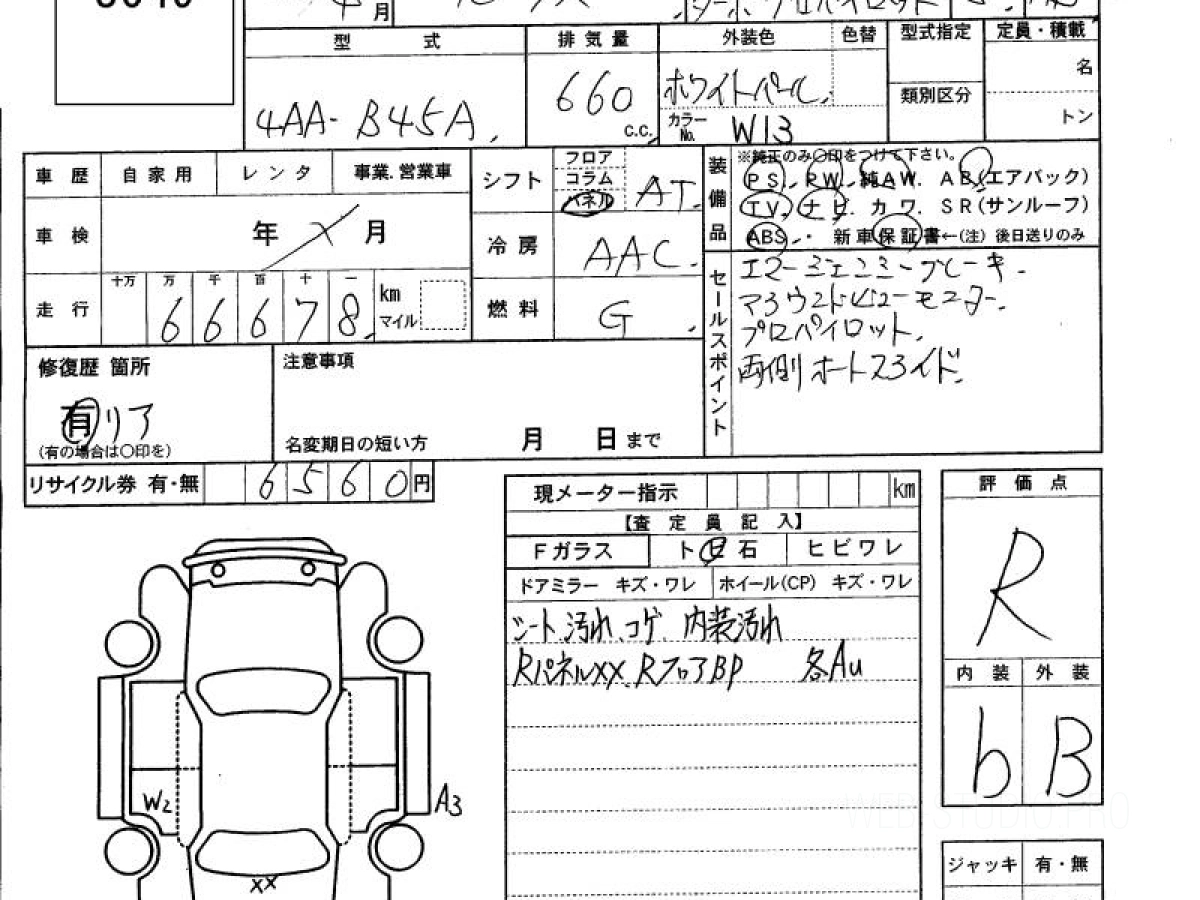 月
型 式 排気量 外装色 色替 型式指定 定員・積載
4AA-B45A. 660 c.c. ホワイトパール. 名
カラーNo. W13 類別区分 トン
車歴 自家用 レンタ 事業.営業車
シフト フロア コラム パネル AT.
装備品 ※純正のみ〇印をつけて下さい。
PS. PW. 純AW. AB(エアバック)
TV. ナビ. カワ. SR(サンルーフ)
ABS. ・ 新車保証書←(注)後日送りのみ
車検 年 月
冷房 AAC.
走行 十万 万 千 百 十 一
66678. km マイル
燃料 G.
セールスポイント
エマージェンシーブレーキ.
アラウンドビューモニター.
プロパイロット.
両側オートスライド.
修復歴 箇所
有 リア
(有の場合は〇印を)
注意事項
名変期日の短い方 月 日 まで
リサイクル券 有・無 6560円
現メーター指示 km
【査定員記入】
Fガラス ト目石 ヒビワレ
ドアミラー キズ・ワレ ホイール(CP) キズ・ワレ
シート汚れ、コゲ 内装汚れ
RパネルXX、RフロアBP 各Au
評価点
R
内装 外装
b B
W2
A3
XX
ジャッキ 有・無
WEB-STUDIO.PRO